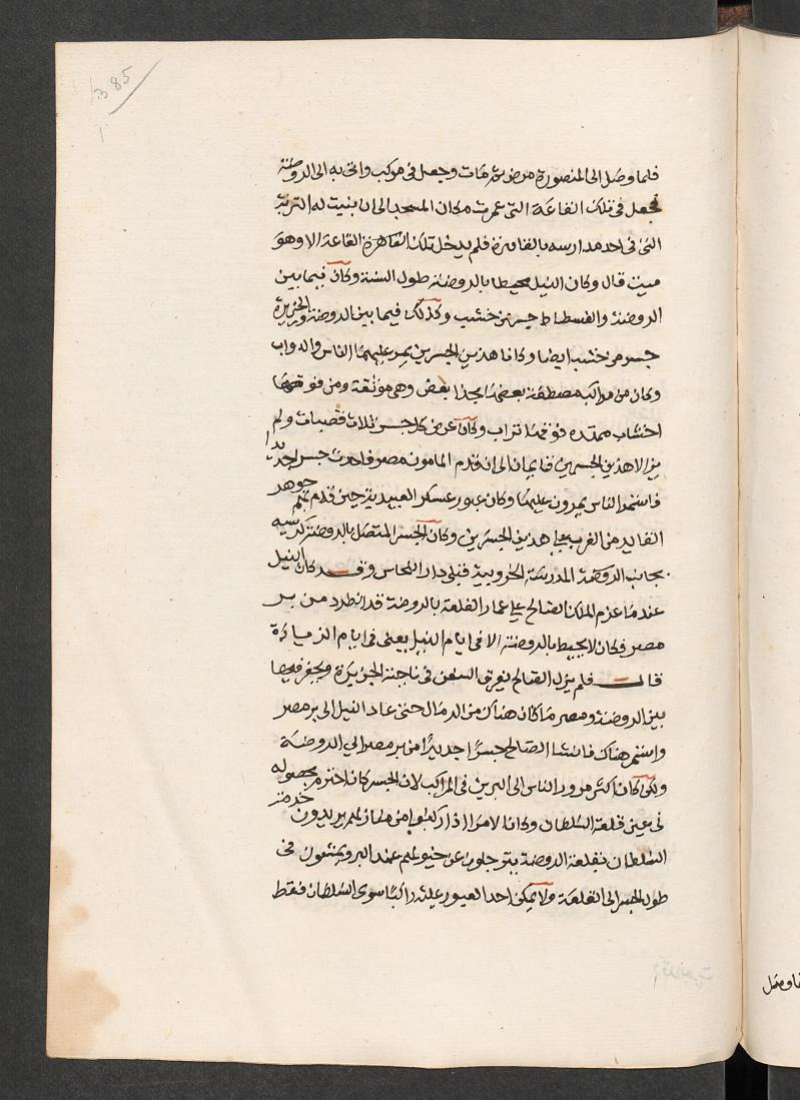 385
فلما وصل الى المنصورة مرض ثم مات وجعل فى مركب واتى به الى الروضة
فجعل فى تلك القاعة التى عمرت مكان المسجد الى ان بنيت له التربة
التى فى احد مدارسه بالقاهرة فلم يدخل تلك القاهرة القاعة الا وهو
ميت قال وكان النيل محيطا بالروضة طول السنة وكان فيما بين
الروضة والفسطاط جسر من خشب وكذلك فيما بين الروضة والجزيرة
جسر من خشب ايضا وكانا هذين الجسرين يمر عليهما الناس والدواب
وكان من مراكب مصطفة بعضها بحذا بعض وهى موثقة ومن فوقها
اخشاب ممتدة فوقها تراب وكان عرض كل جسر ثلاث قصبات ولم
يزالا هذين الجسرين قايمان الى ان قدم المامون مصر فاحدث جسرا جديدا
فاستمر الناس يمرون عليهما وكان عبور عسكر العبيدية حين قدم بهم جوهر
القايد من الغرب على هذين الجسرين وكان الجسر المتصل بالروضة كرسيه
بجانب الروضة المدرسة الخروبية قبلى دار النحاس وقد كان النيل
عندما عزم الملك الصالح على عمار القلعة بالروضة قد انطرد من بر
مصر فكان لا يحيط بالروضة الا فى ايام النيل يعنى فى ايام الزيادة
قال فلم يزل الصالح يغرق السفن فى ناحية الجزيرة ويحفر فيما
بين الروضة ومصر ما كان هناك من الرمال حتى عاد النيل الى بر مصر
واستمر هناك فانشا الصالح جسرا جديدا من بر مصر الى الروضة
ولكن كان اكثر مرور الناس الى البرين فى المراكب لان الجسر كان احترم بحصوله
فى عين قلعة السلطان وكان الامرا اذا ركبوا من منازلهم يريدون خدمة
السلطان بقلعة الروضة يترجلون عن خيولهم عند البر ويمشون فى
طول الجسر الى القلعة ولا يمكن احد العبور عليه راكبا سوى السلطان فقط